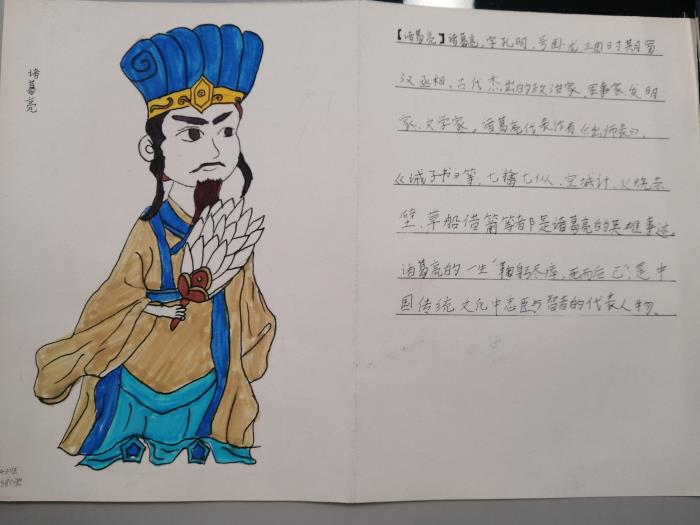 诸葛亮
【诸葛亮】诸葛亮，字孔明，号卧龙三国时期蜀
汉丞相，古代杰出的政治家，军事家，发明
家，文学家，诸葛亮代表作有《出师表》、
《诫子书》等，七擒七纵、空城计、火烧赤
壁、草船借箭等都是诸葛亮的英雄事迹。
诸葛亮的一生"鞠躬尽瘁，死而后已"，是中
国传统文化中忠臣与智者的代表人物。